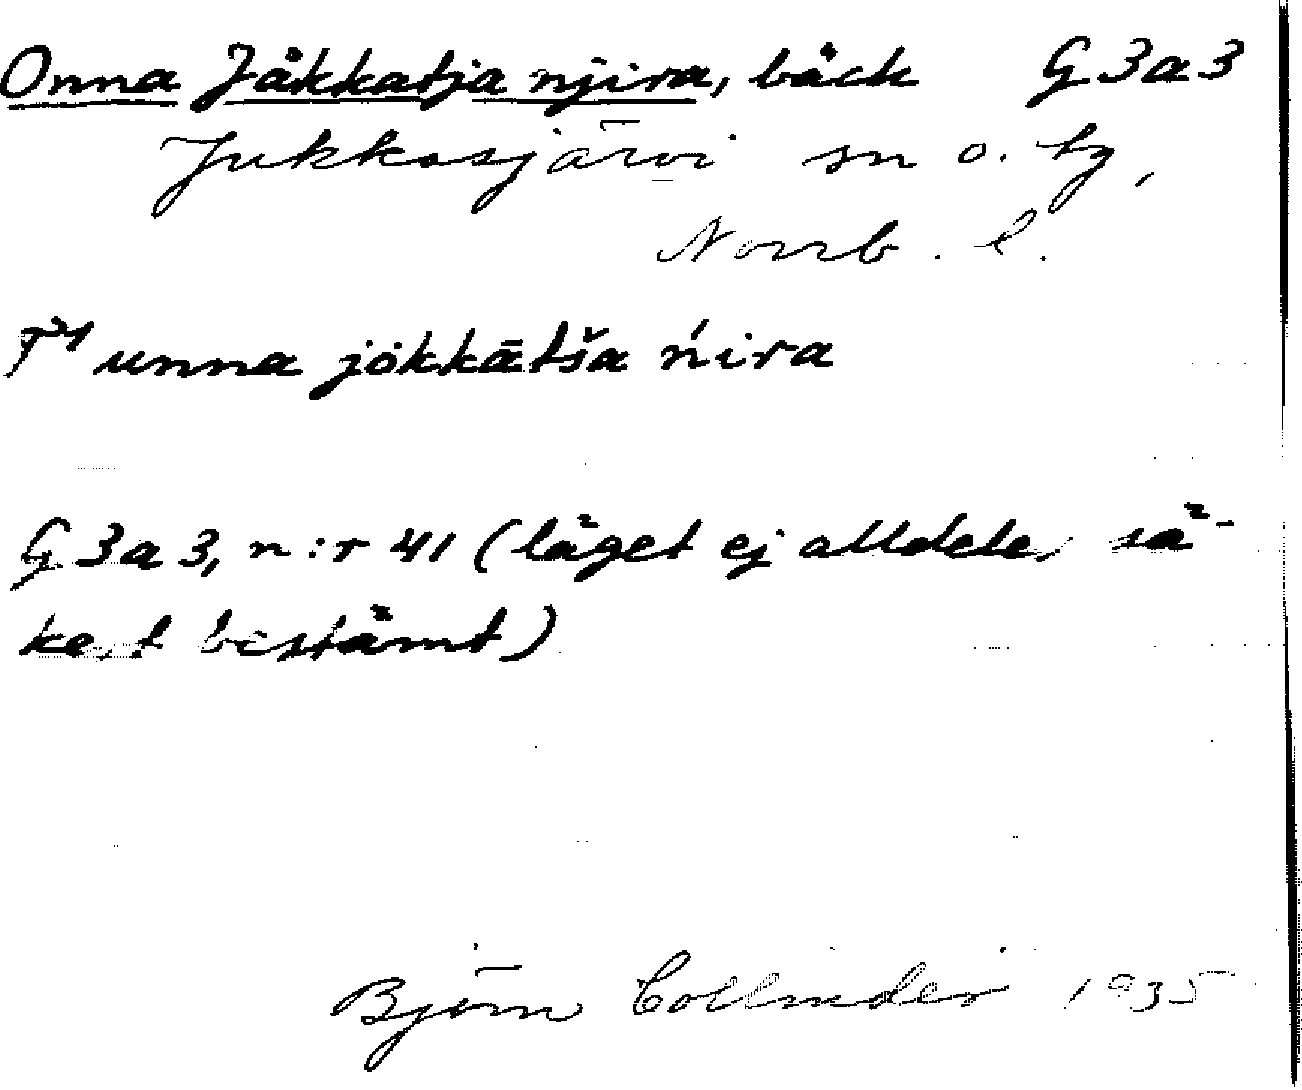 Onna Jåkkatja njira, bäck G 3 a 3
Jukkasjärvi sn o. tg,
Norrb. l.
unna jokkātša ńira
G 3 a 3, n:r 41 (läget ej alldeles sä-
kert bestämt)
Björn Collinder 1935